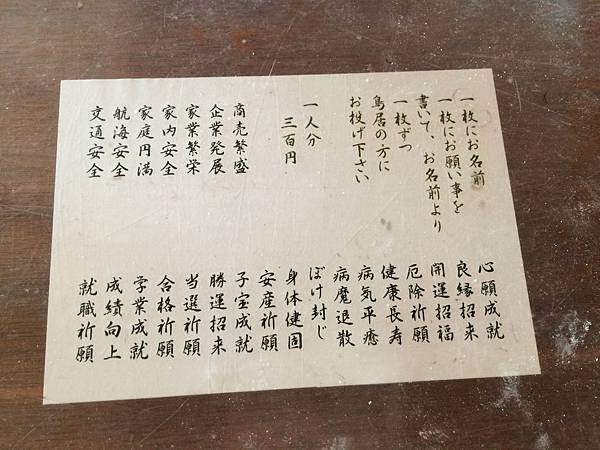 一枚にお名前
一枚にお願い事を
書いて、お名前より
一枚ずつ
鳥居の方に
お投げ下さい
一人分
三百円
商売繁盛
企業発展
家業繁栄
家内安全
家庭円満
航海安全
交通安全
心願成就
良縁招来
開運招福
厄除祈願
健康長寿
病気平癒
病魔退散
ぼけ封じ
身体健固
安産祈願
子宝成就
勝運招来
当選祈願
合格祈願
学業成就
成績向上
就職祈願